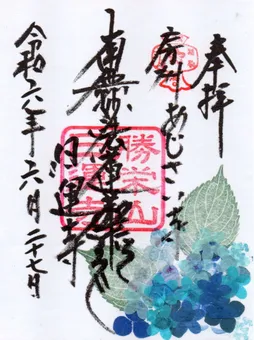 奉拝
房州あじさい寺
南無妙法蓮華経
日運寺
令和六年六月二十七日
勝栄山
日運寺